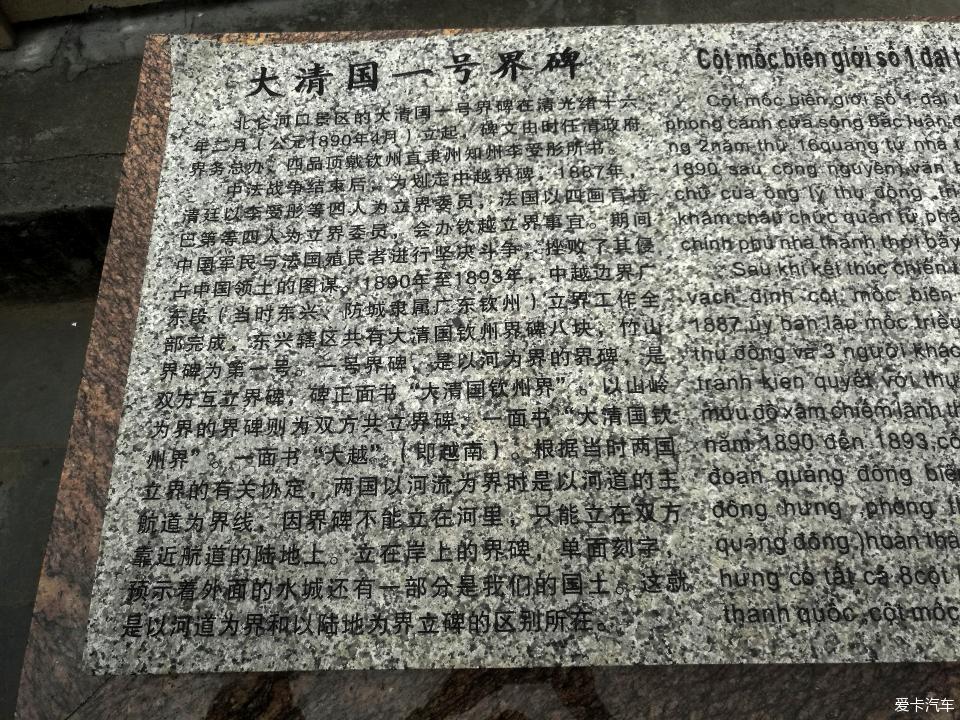 大清国一号界碑
北仑河口景区的大清国一号界碑在清光绪十六
年二月（公元1890年4月）立起，碑文由时任清政府
界务总办、四品顶戴钦州直隶州知州李受彤所书。
中法战争结束后，为划定中越界碑，1887年，
清廷以李受彤等四人为立界委员；法国以四画官拉
巴第等四人为立界委员，会办钦越立界事宜。期间
中国军民与法国殖民者进行坚决斗争，挫败了其侵
占中国领土的图谋。1890年至1893年，中越边界广
东段（当时东兴、防城隶属广东钦州）立界工作全
部完成，东兴辖区共有大清国钦州界碑八块，竹山
界碑为第一号。一号界碑，是以河为界的界碑，是
双方互立界碑，碑正面书“大清国钦州界”。以山岭
为界的界碑则为双方共立界碑，一面书“大清国钦
州界”。一面书“大越”（即越南）。根据当时两国
立界的有关协定，两国以河流为界时是以河道的主
航道为界线，因界碑不能立在河里，只能立在双方
靠近航道的陆地上。立在岸上的界碑，单面刻字，
预示着外面的水域还有一部分是我们的国土。这就
是以河道为界和以陆地为界立碑的区别所在。
Cột mốc biên giới số 1 đại
Cột mốc biên giới số 1 đại
phong cảnh cửa sông Bắc luân
ng 2năm thứ 16quang tự nhà
1890 sau công nguyên)văn
chữ của ông lý thụ đông th
khâm châu chức quan tứ ph
chính phủ nhà thanh thời bấy
Sau khi kết thúc chiến
vạch định cột mốc biên
1887,ủy ban lập mốc triều
thụ đông và 3 người khác
tranh kiên quyết với thự
mưu đồ xâm chiếm lãnh th
năm 1890 đến 1893,cô
đoạn quảng đông biê
đông hưng ,phòng th
quảng đông )hoàn thà
hưng có tất cả 8cột
thanh quốc ,cột mốc
爱卡汽车